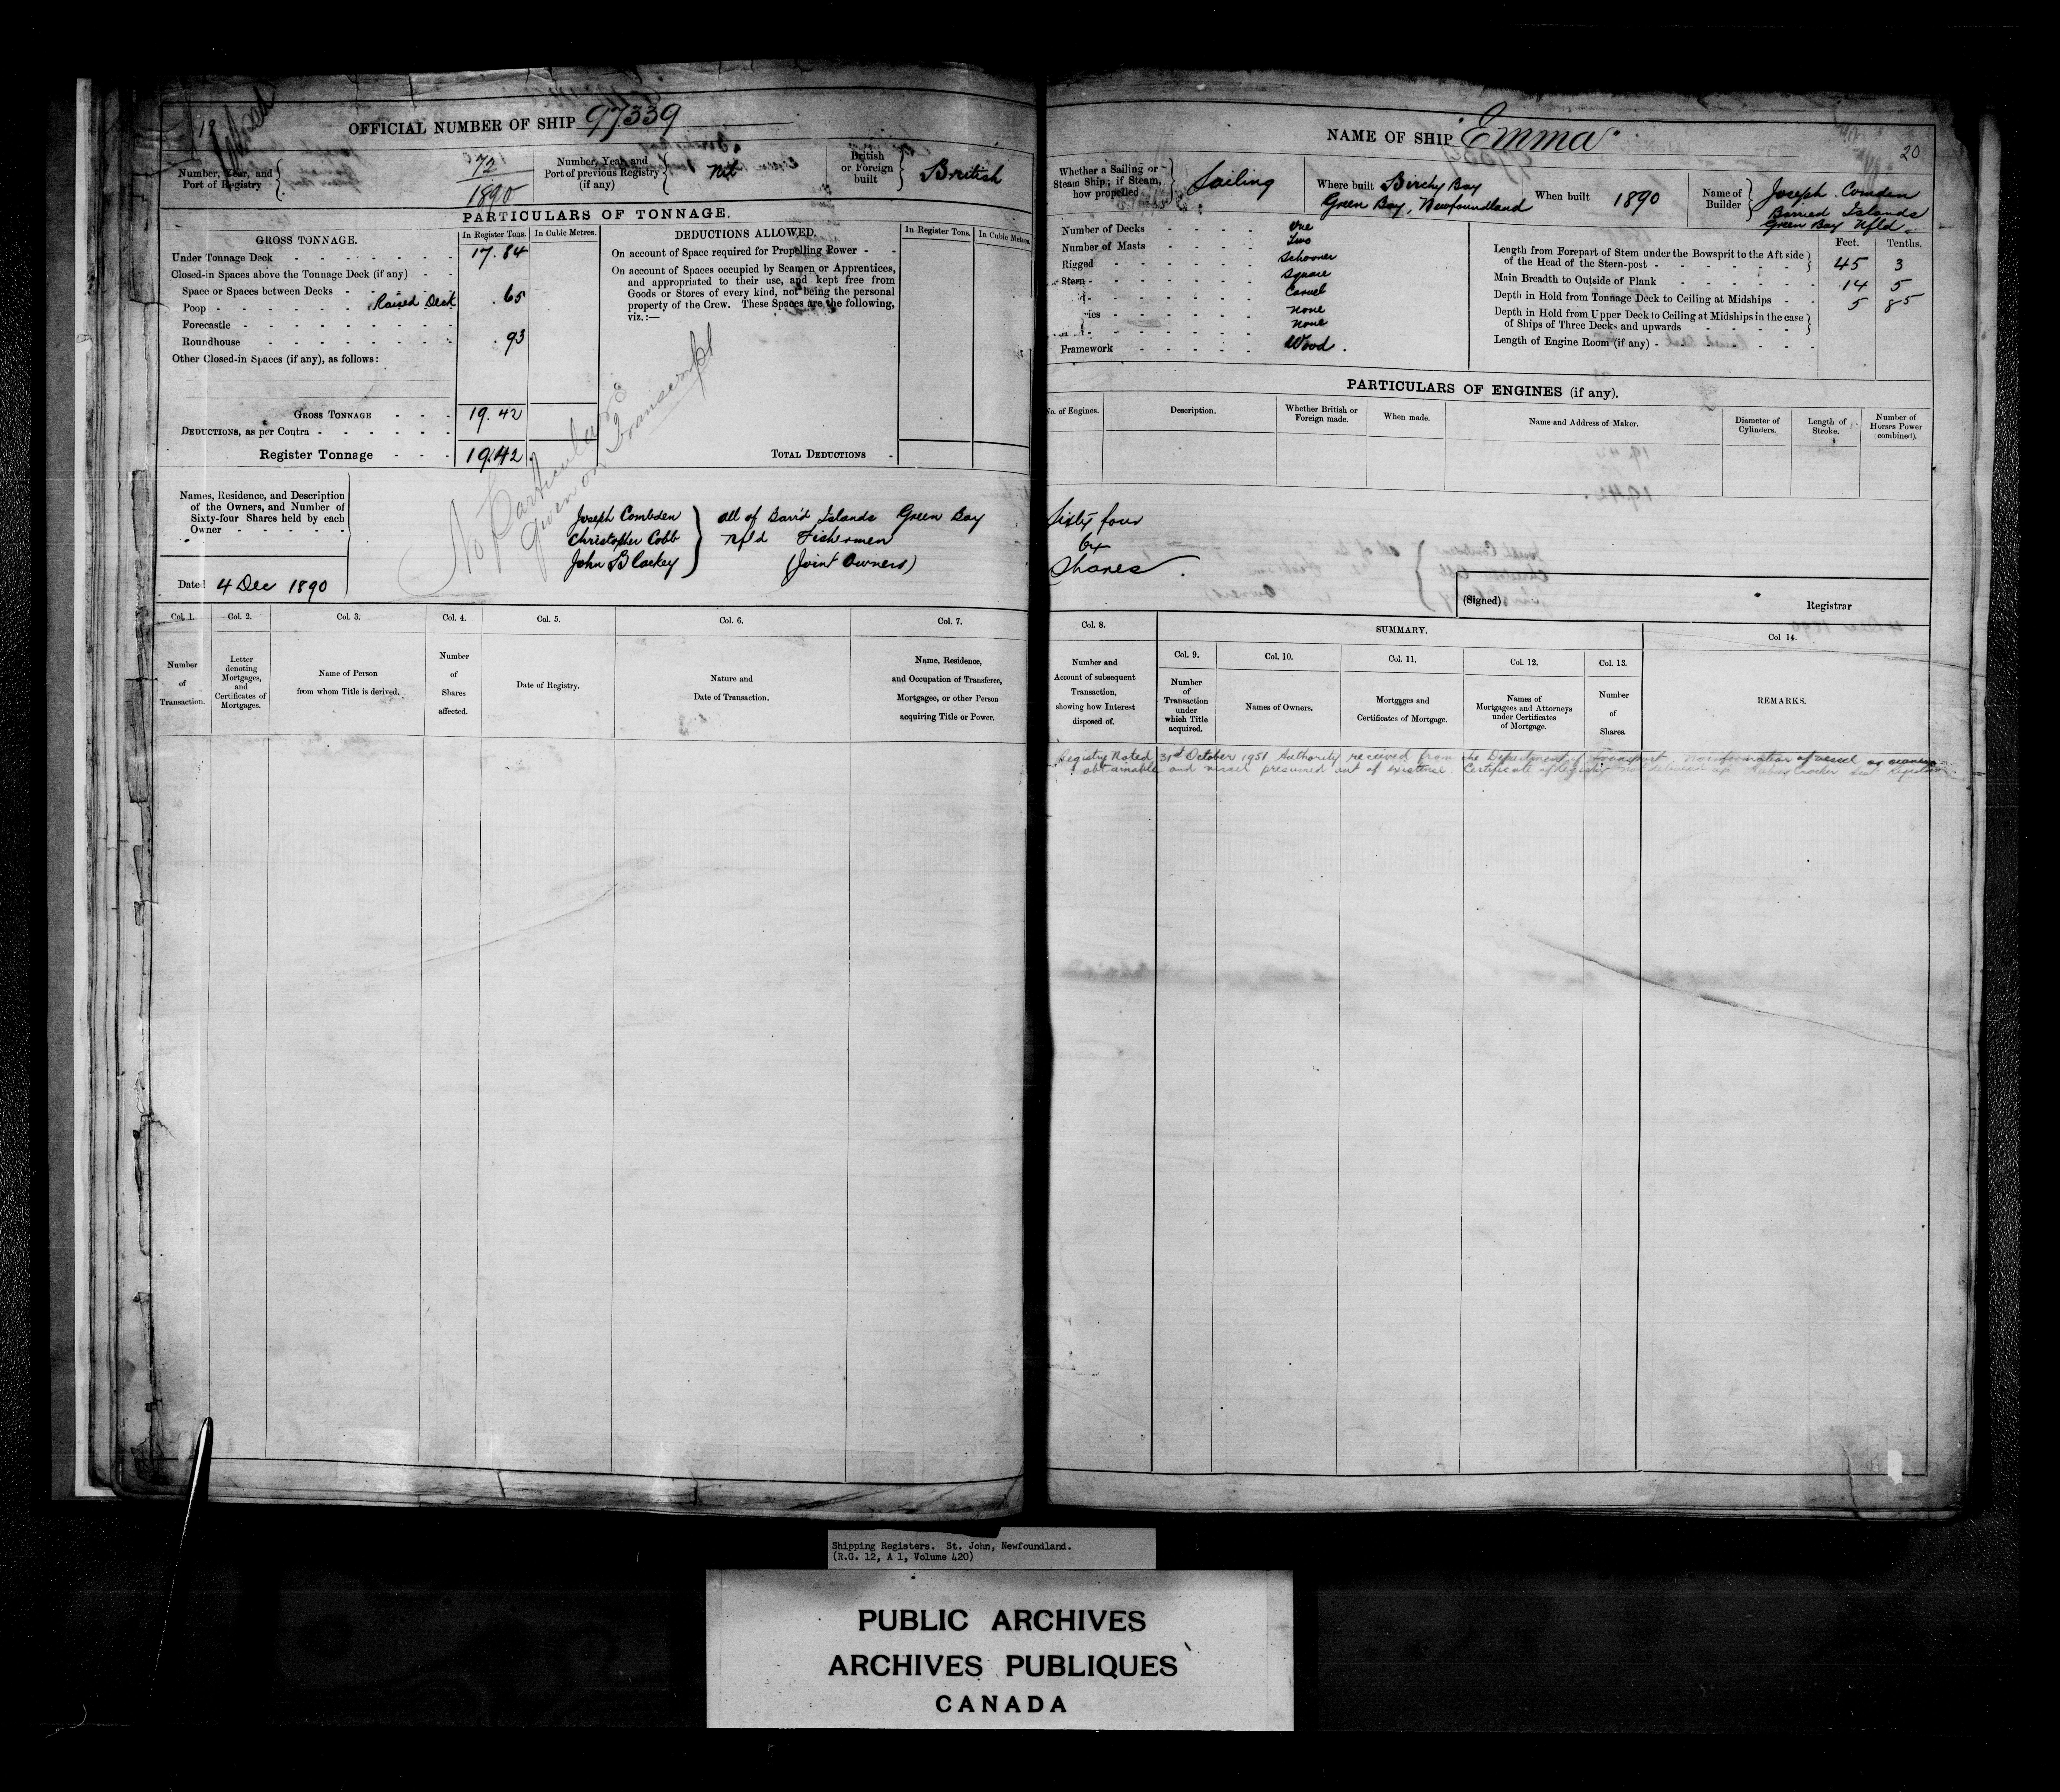 19
OFFICIAL NUMBER OF SHIP 97339
Number, Year, and Port of Registry 72 1890
Number, Year, and Port of previous Registry (if any) Nil
British or Foreign built British
PARTICULARS OF TONNAGE.
GROSS TONNAGE. In Register Tons. In Cubic Metres.
Under Tonnage Deck 17.84
Closed-in Spaces above the Tonnage Deck (if any)
Space or Spaces between Decks
Poop Raised Deck .65
Forecastle
Roundhouse .93
Other Closed-in Spaces (if any), as follows:
GROSS TONNAGE 19.42
DEDUCTIONS, as per Contra
Register Tonnage 19.42
DEDUCTIONS ALLOWED. In Register Tons. In Cubic Metres.
On account of Space required for Propelling Power
On account of Spaces occupied by Seamen or Apprentices,
and appropriated to their use, and kept free from
Goods or Stores of every kind, not being the personal
property of the Crew. These Spaces are the following,
viz.:—
No Particulars
given on Transcript
TOTAL DEDUCTIONS
Names, Residence, and Description
of the Owners, and Number of
Sixty-four Shares held by each
Owner
Joseph Combden
Christopher Cobb
John Blackey
all of Barid Islands Green Bay
Nfld Fishermen
(Joint Owners)
Dated 4 Dec 1890
Col. 1. Col. 2. Col. 3. Col. 4. Col. 5. Col. 6. Col. 7.
Number of Transaction.
Letter denoting Mortgages, and Certificates of Mortgages.
Name of Person from whom Title is derived.
Number of Shares affected.
Date of Registry.
Nature and Date of Transaction.
Name, Residence, and Occupation of Transferee, Mortgagee, or other Person acquiring Title or Power.
NAME OF SHIP Emma
20
Whether a Sailing or Steam Ship; if Steam, how propelled Sailing
Where built Birchy Bay Green Bay, Newfoundland
When built 1890
Name of Builder Joseph Comden
Barried Islands
Green Bay Nfld.
Number of Decks One
Number of Masts Two
Rigged Schooner
Stern Square
Carvel
none
none
Framework Wood.
Feet. Tenths.
Length from Forepart of Stem under the Bowsprit to the Aft side of the Head of the Stern-post 45 3
Main Breadth to Outside of Plank 14 5
Depth in Hold from Tonnage Deck to Ceiling at Midships 5 85
Depth in Hold from Upper Deck to Ceiling at Midships in the case of Ships of Three Decks and upwards
Length of Engine Room (if any)
PARTICULARS OF ENGINES (if any).
No. of Engines. Description. Whether British or Foreign made. When made. Name and Address of Maker. Diameter of Cylinders. Length of Stroke. Number of Horses Power (combined).
Sixty four
64
Shares.
(Signed) Registrar
Col. 8. SUMMARY. Col 14.
Col. 9. Col. 10. Col. 11. Col. 12. Col. 13.
Number and Account of subsequent Transaction, showing how Interest disposed of.
Number of Transaction under which Title acquired.
Names of Owners.
Mortgages and Certificates of Mortgage.
Names of Mortgagees and Attorneys under Certificates of Mortgage.
Number of Shares.
REMARKS.
Registry Noted 31st October 1951 Authority received from the Department of Transport, no information of vessel or owners
obtainable and vessel presumed out of existence. Certificate of Registry not delivered up.
Shipping Registers. St. John, Newfoundland.
(R.G. 12, A 1, Volume 420)
PUBLIC ARCHIVES
ARCHIVES PUBLIQUES
CANADA